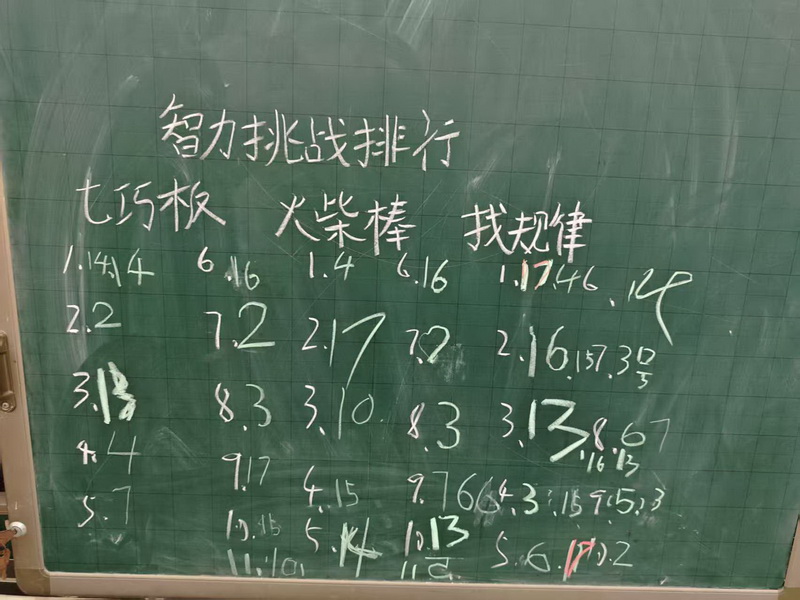 智力挑战排行
七巧板 火柴棒 找规律
1.14.14 6.16 1.4 6.16 1.17.46.14
2.2 7.2 2.17 7.2 2.16.157.3
3.13 8.3 3.10. 8.3 3.13 8.67
4.4 9.17 4.15 9.766 4.3 .15 9.5.3
16 13
5.7 10.15 5.14 10.13 5.6.17 10.2
11.10. 11.